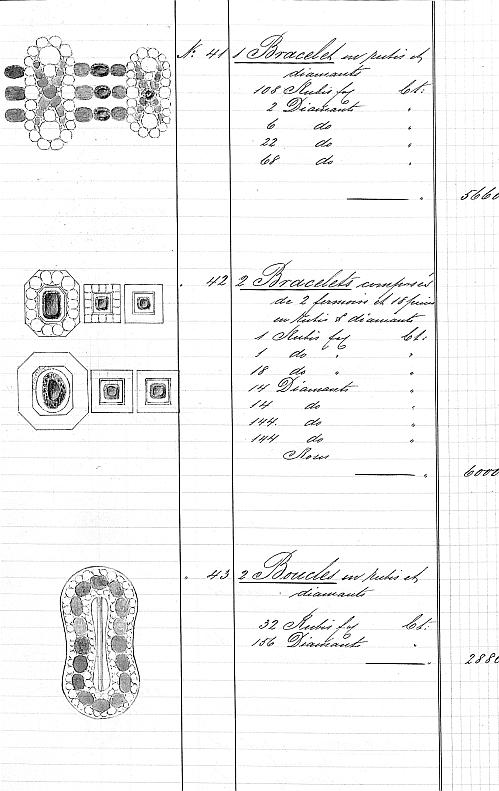 N: 41 1 Bracelet en rubis et
diamants
108 Rubis Ct:
2 Diamants "
6 do "
22 do "
68 do "
" 5660
" 42 2 Bracelets composés
de 2 fermoirs et 18
en rubis & diamants
1 Rubis Ct:
1 do " "
18 do " "
14 Diamants "
14 do "
144 do "
144 do "
Roses
" 6000
" 43 2 Boucles en rubis et
diamants
32 Rubis Ct:
156 Diamants "
" 2880